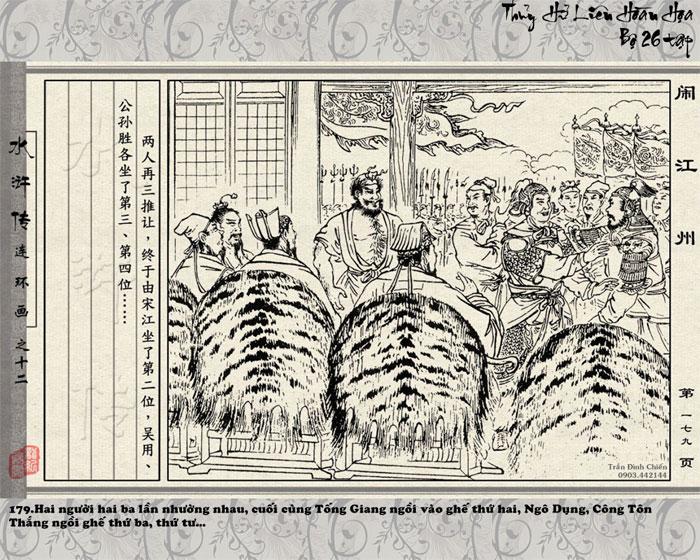 Thủy Hử Liên Hoàn Họa
Bộ 26 tập
水浒传连环画之十二
两人再三推让，终于由宋江坐了第二位，吴用、
公孙胜各坐了第三、第四位……
闹江州
第一七九页
Trần Đình Chiến
0903.442144
179.Hai người hai ba lần nhường nhau, cuối cùng Tống Giang ngồi vào ghế thứ hai, Ngô Dụng, Công Tôn
Thắng ngồi ghế thứ ba, thứ tư...